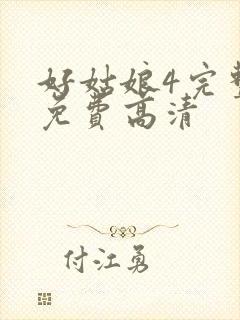 好姑娘4完整
免费高清
付江勇